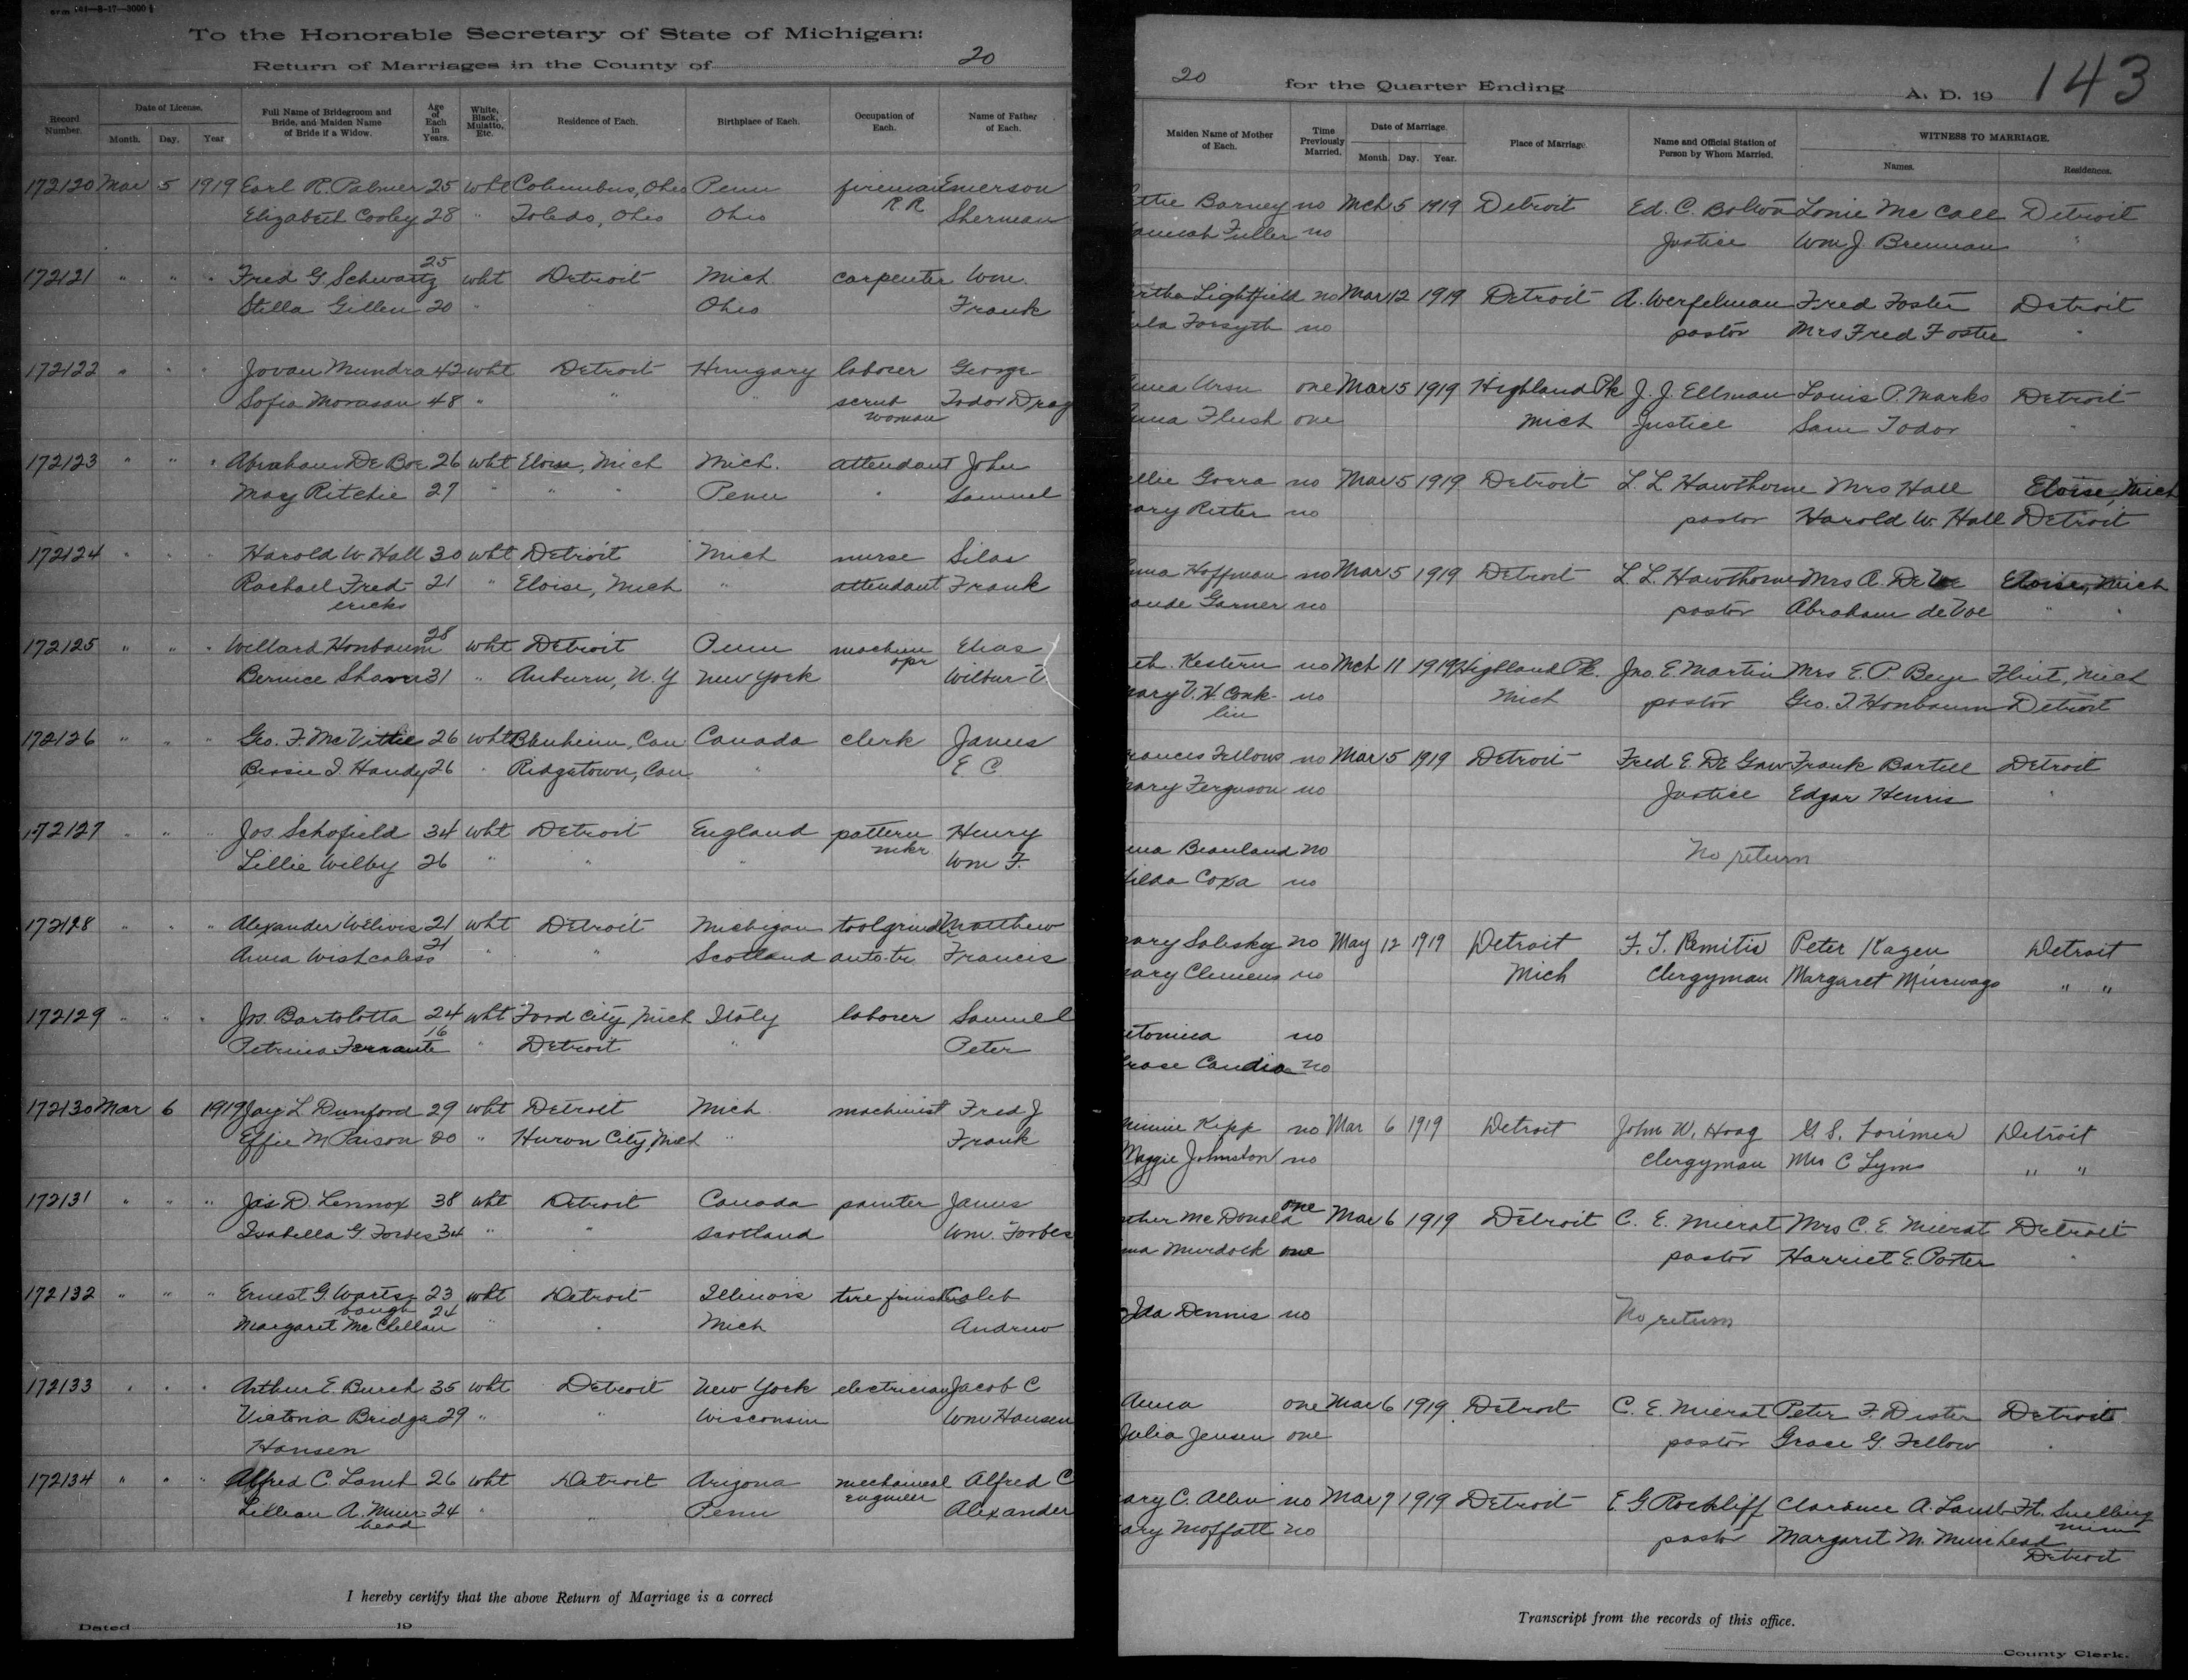 To the Honorable Secretary of State of Michigan:
Return of Marriages in the County of 20
Record Number. Date of License. Month. Day. Year Full Name of Bridegroom and Bride, and Maiden Name of Bride if a Widow. Age of Each in Years. White, Black, Mulatto, Etc. Residence of Each. Birthplace of Each. Occupation of Each. Name of Father of Each.
172120 Mar 5 1919 Earl R. Palmer 25 wht Columbus, Ohio Penn fireman R R Emerson
Elizabeth Cooley 28 " Toledo, Ohio Ohio Sherman
172121 " " " Fred G. Schwartz 25 wht Detroit Mich carpenter Wm.
Stella Gillen 20 " " Ohio Frank
172122 " " " Jovan Mundra 42 wht Detroit Hungary laborer George
Sofia Morasan 48 " " " scrub woman Todor Drag
172123 " " " Abraham De Boe 26 wht Eloise, Mich Mich. attendant John
May Ritchie 27 " " " Penn " Samuel
172124 " " " Harold W. Hall 30 wht Detroit Mich nurse Silas
Rachael Fredericks 21 " Eloise, Mich " attendant Frank
172125 " " " Willard Honbaum 28 wht Detroit Penn machine opr Elias
Bernice Shaver 31 " Auburn, N.Y New York Wilbur V
172126 " " " Geo. F. McVittie 26 wht Blenheim, Can Canada clerk James
Bessie I. Handy 26 " Ridgetown, Can " E C
172127 " " " Jos. Schofield 34 wht Detroit England pattern mkr Henry
Lillie Wilby 26 " " " Wm F.
172128 " " " Alexander Welivis 21 wht Detroit Michigan toolgrinder Matthew
Anna Wishcaless 21 " " Scotland auto-tr Francis
172129 " " " Jos. Bartolotta 24 wht Ford City, Mich Italy laborer Samuel
Petrina Ferrante 16 " Detroit " Peter
172130 Mar 6 1919 Jay L Dunford 29 wht Detroit Mich machinist Fred J
Effie M Paison 20 " Huron City, Mich " Frank
172131 " " " Jas D. Lennox 38 wht Detroit Canada painter James
Isabella G Forbes 34 " " Scotland Wm. Forbes
172132 " " " Ernest G. Wartsbaugh 23 wht Detroit Illinois tire finisher Caleb
Margaret McClellan 24 " " Mich Andrew
172133 " " " Arthur E. Burch 35 wht Detroit New York electrician Jacob C
Victoria Bridga 29 " " Wisconsin Wm Hansen
Hansen
172134 " " " Alfred C. Lamb 26 wht Detroit Arizona mechanical engineer Alfred C
Lillian A. Muirhead 24 " " Penn Alexander
I hereby certify that the above Return of Marriage is a correct
Dated 19
20 for the Quarter Ending A. D. 19 143
Maiden Name of Mother of Each. Time Previously Married. Date of Marriage. Month. Day. Year. Place of Marriage Name and Official Station of Person by Whom Married. WITNESS TO MARRIAGE. Names. Residences.
ttie Barney no Mch 5 1919 Detroit Ed. C. Bolton Lonie McCall Detroit
annah Fuller no Justice Wm J. Brennan "
rtha Lightfield no Mar 12 1919 Detroit A. Werfelman Fred Foster Detroit
ula Forsyth no pastor Mrs Fred Foster "
nna Ursu one Mar 5 1919 Highland Pk J. J. Ellman Louis P. Marks Detroit
nna Flush one Mich Justice Sam Todor "
ellie Gorra no Mar 5 1919 Detroit L. L. Hawthorne Mrs Hall Eloise, Mich
ary Retter no pastor Harold W. Hall Detroit
nna Hoffman no Mar 5 1919 Detroit L. L. Hawthorne Mrs A. De Voe Eloise, Mich
aude Garner no pastor Abraham de Voe " "
eth. Kestern no Mch 11 1919 Highland Pk. Jno. E. Martin Mrs E. P. Beye Flint, Mich
ary V. H. Conklin no Mich pastor Geo. T. Honbaum Detroit
rances Fellows no Mar 5 1919 Detroit Fred E. De Gaw Frank Bartell Detroit
ary Ferguson no Justice Edgar Henris "
nna Beanland no No return
ilda Coxa no
ary Solisky no May 12 1919 Detroit F. T. Remitis Peter Kagen Detroit
ary Clemens no Mich Clergyman Margaret " "
ntonina no
rose Candia no
innie Kipp no Mar 6 1919 Detroit John W. Hoag G. S. Lorimer Detroit
Maggie Johnston no Clergyman Mrs C Lyms " "
ther McDonald one Mar 6 1919 Detroit C. E. Mierat Mrs C. E. Mierat Detroit
na Murdock one pastor Harriet E. Porter "
Ida Dennis no No return
Anna one Mar 6 1919 Detroit C. E. Mierat Peter F. Dister Detroit
Julia Jensen one pastor Grace G. Fellow "
ary C. Allen no Mar 7 1919 Detroit E. G. Rockliff Clarence A. Lamb Ft. Snelling Minn
ary Moffatt no pastor Margaret M. Muirhead Detroit
Transcript from the records of this office.
County Clerk.